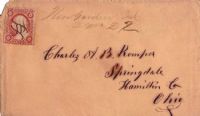 New Garden
27
Charley A B Kemper
Springdale
Hamilton Co
Ohio